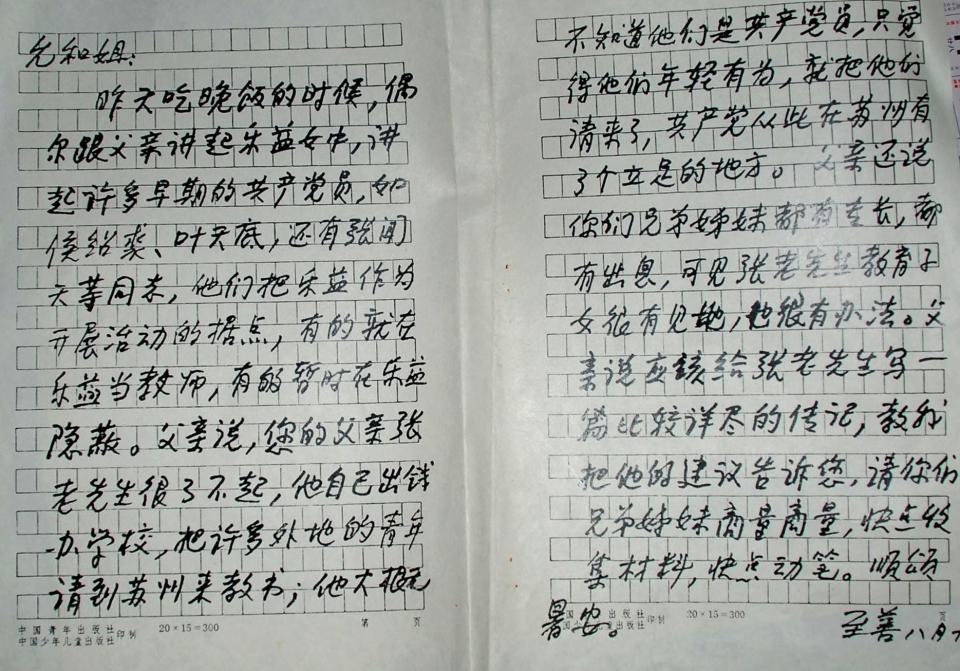 允和姐：
昨天吃晚饭的时候，偶
尔跟父亲讲起乐益女中，讲
起许多早期的共产党员，如
侯绍裘、叶天底，还有张闻
天等同志，他们把乐益作为
开展活动的据点，有的就在
乐益当教师，有的暂时在乐益
隐蔽。父亲说，您的父亲张
老先生很了不起，他自己出钱
办学校，把许多外地的青年
请到苏州来教书；他大概
中国青年出版社
中国少年儿童出版社
印制
20×15=300
第 页
不知道他们是共产党员，只觉
得他们年轻有为，就把他们
请来了，共产党从此在苏州有
了个立足的地方。父亲还说
你们兄弟姊妹都有专长，都
有出息，可见张老先生教育子
女很有见地，也很有办法。父
亲说应该给张老先生写一
篇比较详尽的传记，教我
把他的建议告诉您，请你们
兄弟姊妹商量商量，快点收
集材料，快点动笔。顺颂
暑安。
国青年出版社
国少年儿童出版社
印制
20×15=300
页
至善 八月